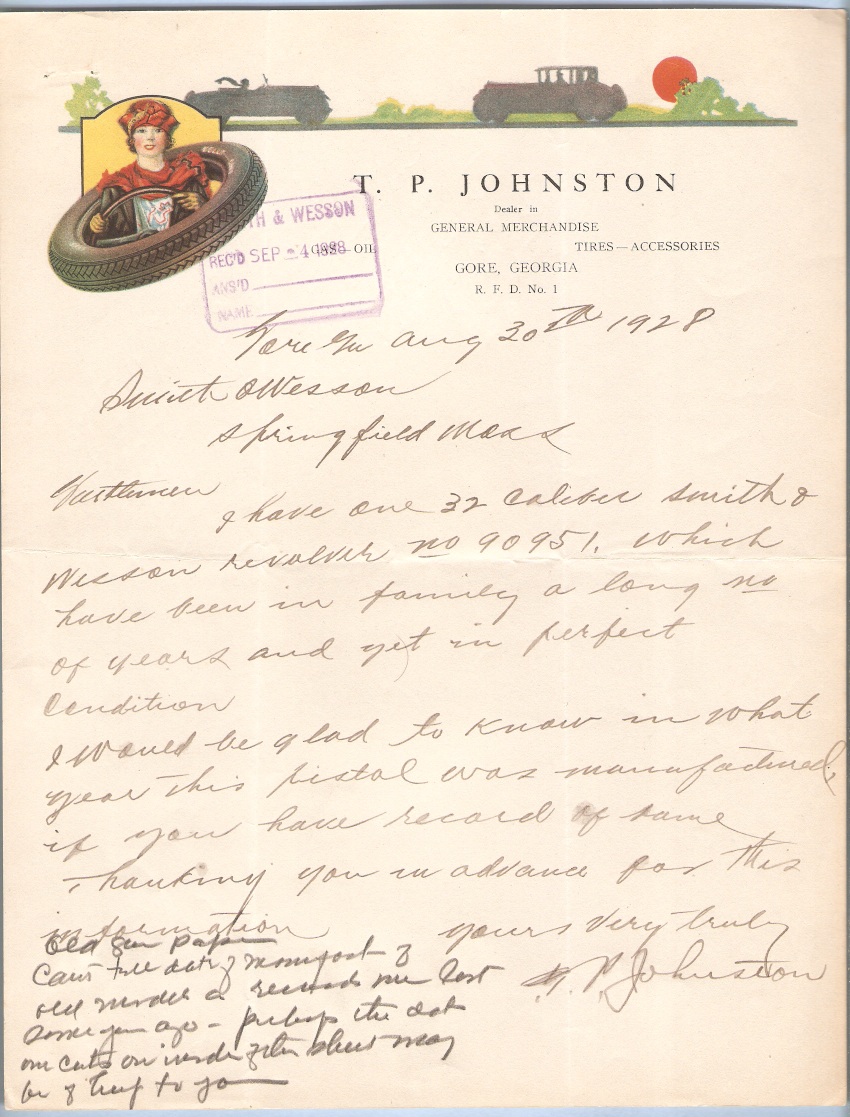 T. P. JOHNSTON
Dealer in
GENERAL MERCHANDISE
GAS—OIL TIRES—ACCESSORIES
GORE, GEORGIA
R. F. D. No. 1
TH & WESSON
REC'D SEP - 4 1928
ANS'D
NAME
Gore Ga Aug 30th 1928
Smith & Wesson
Springfield Mass
Gentlemen
I have one 32 caliber smith &
Wesson revolver no 90951. which
have been in family a long no
of years and yet in perfect
condition
I would be glad to know in what
year this pistol was manufactured,
if you have record of same
Thanking you in advance for this
information
yours very truly
T. P. Johnston
Old gun paper
Can't tell date of
old model as records were lost
some years ago - perhaps the dates
on cuts on inside of this sheet may
be of help to you